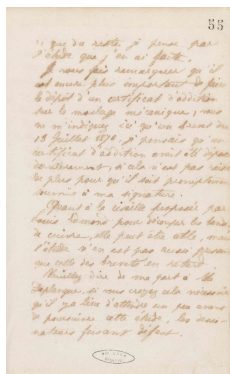 55
que du reste je pense par
l'étude que j'en ai faite.
Je vous fais remarquer qu'il
est aussi plus important de faire
le dépôt d'un certificat d'addition
sur le montage mécanique, vous
m'indiquez ici qu'un brevet du
13 Juillet 1878, je pensais qu'un
certificat d'addition avait été déposé
si cela n'est pas
plus pour qu'il soit promptement
soumis à ma signature.
Quant à la cisaille proposée par
Louis Edmond pour découper les bandes
de cuivre, elle peut être utile, mais
l'étude n'en est pas aussi pressante
que celle des brevets en retard.
Veuillez dire de ma part à Mr
si vous croyez cela nécessaire
qu'il y a lieu d'attendre un peu avant
de poursuivre cette étude, les dessi-
nateurs faisant défaut.